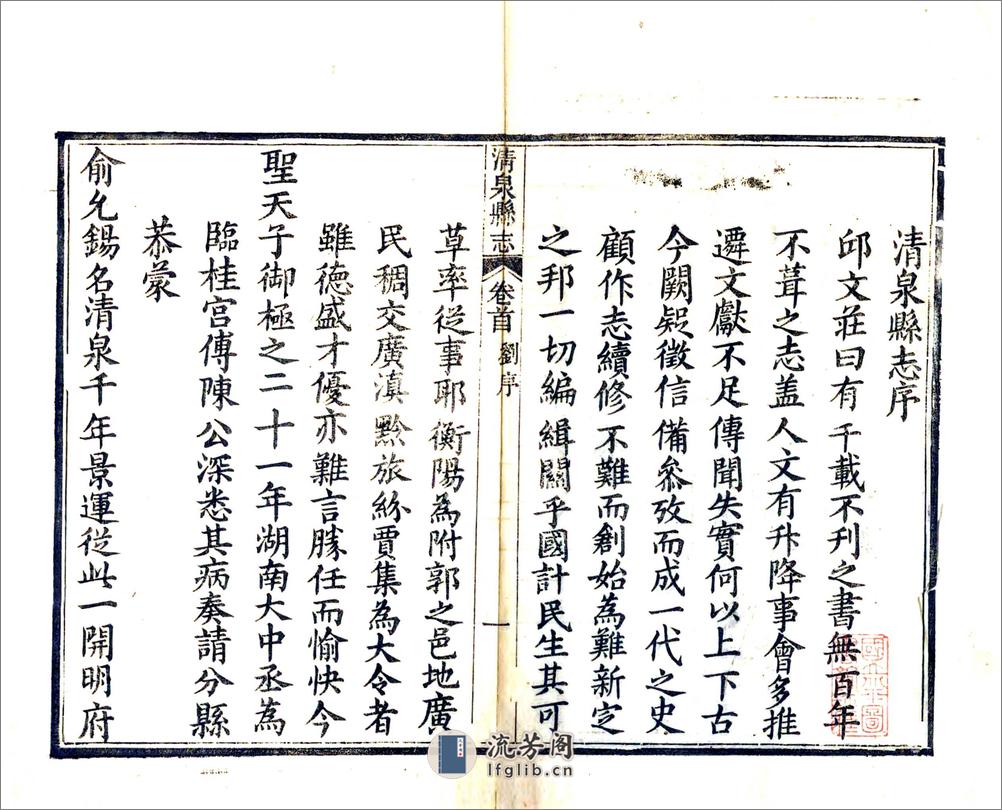 清泉縣志序
邱文莊曰有千載不刋之書無百年
不葺之志盖人文有升降事會多推
遷文獻不足傳聞失實何以上下古
今闕疑徵信備叅攷而成一代之史
顧作志續修不難而創始為難新定
之邦一切編緝關乎國計民生其可
清泉縣志 卷首 劉序 一
草率從事耶衡陽為附郭之邑地廣
民稠交廣滇黔旅紛賈集為大令者
雖德盛才優亦難言勝任而愉快今
聖天子御極之二十一年湖南大中丞為
臨桂宫傅陳公深悉其病奏請分縣
恭蒙
俞允錫名清泉千年景運從此一開明府
流芳阁
lfglib.cn